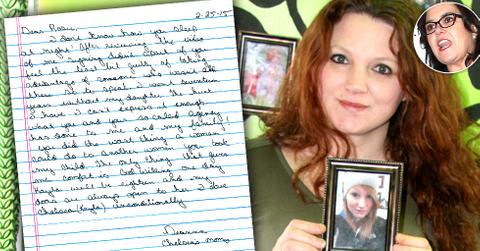 2-25-15
Dear Rosie,
I don't know how you sleep
at night! After reviewing the video
of me signing didn't any part of you
feel the least bit guilty of taking
advantage of someone who wasn't able
there so to speak. I went seventeen
years without my daughter. The hurt
I have I can't express it enough
what you and your so called agency
has done to me and my family!
You did the worst thing a woman
could do to another woman you took
my child. The only thing that gives
me comfort is God willing one day
Kayla will be eighteen and my
doors are always open to her. I love
Chelsea (Kayla) unconditionally
Deanna
Chelsea's mom